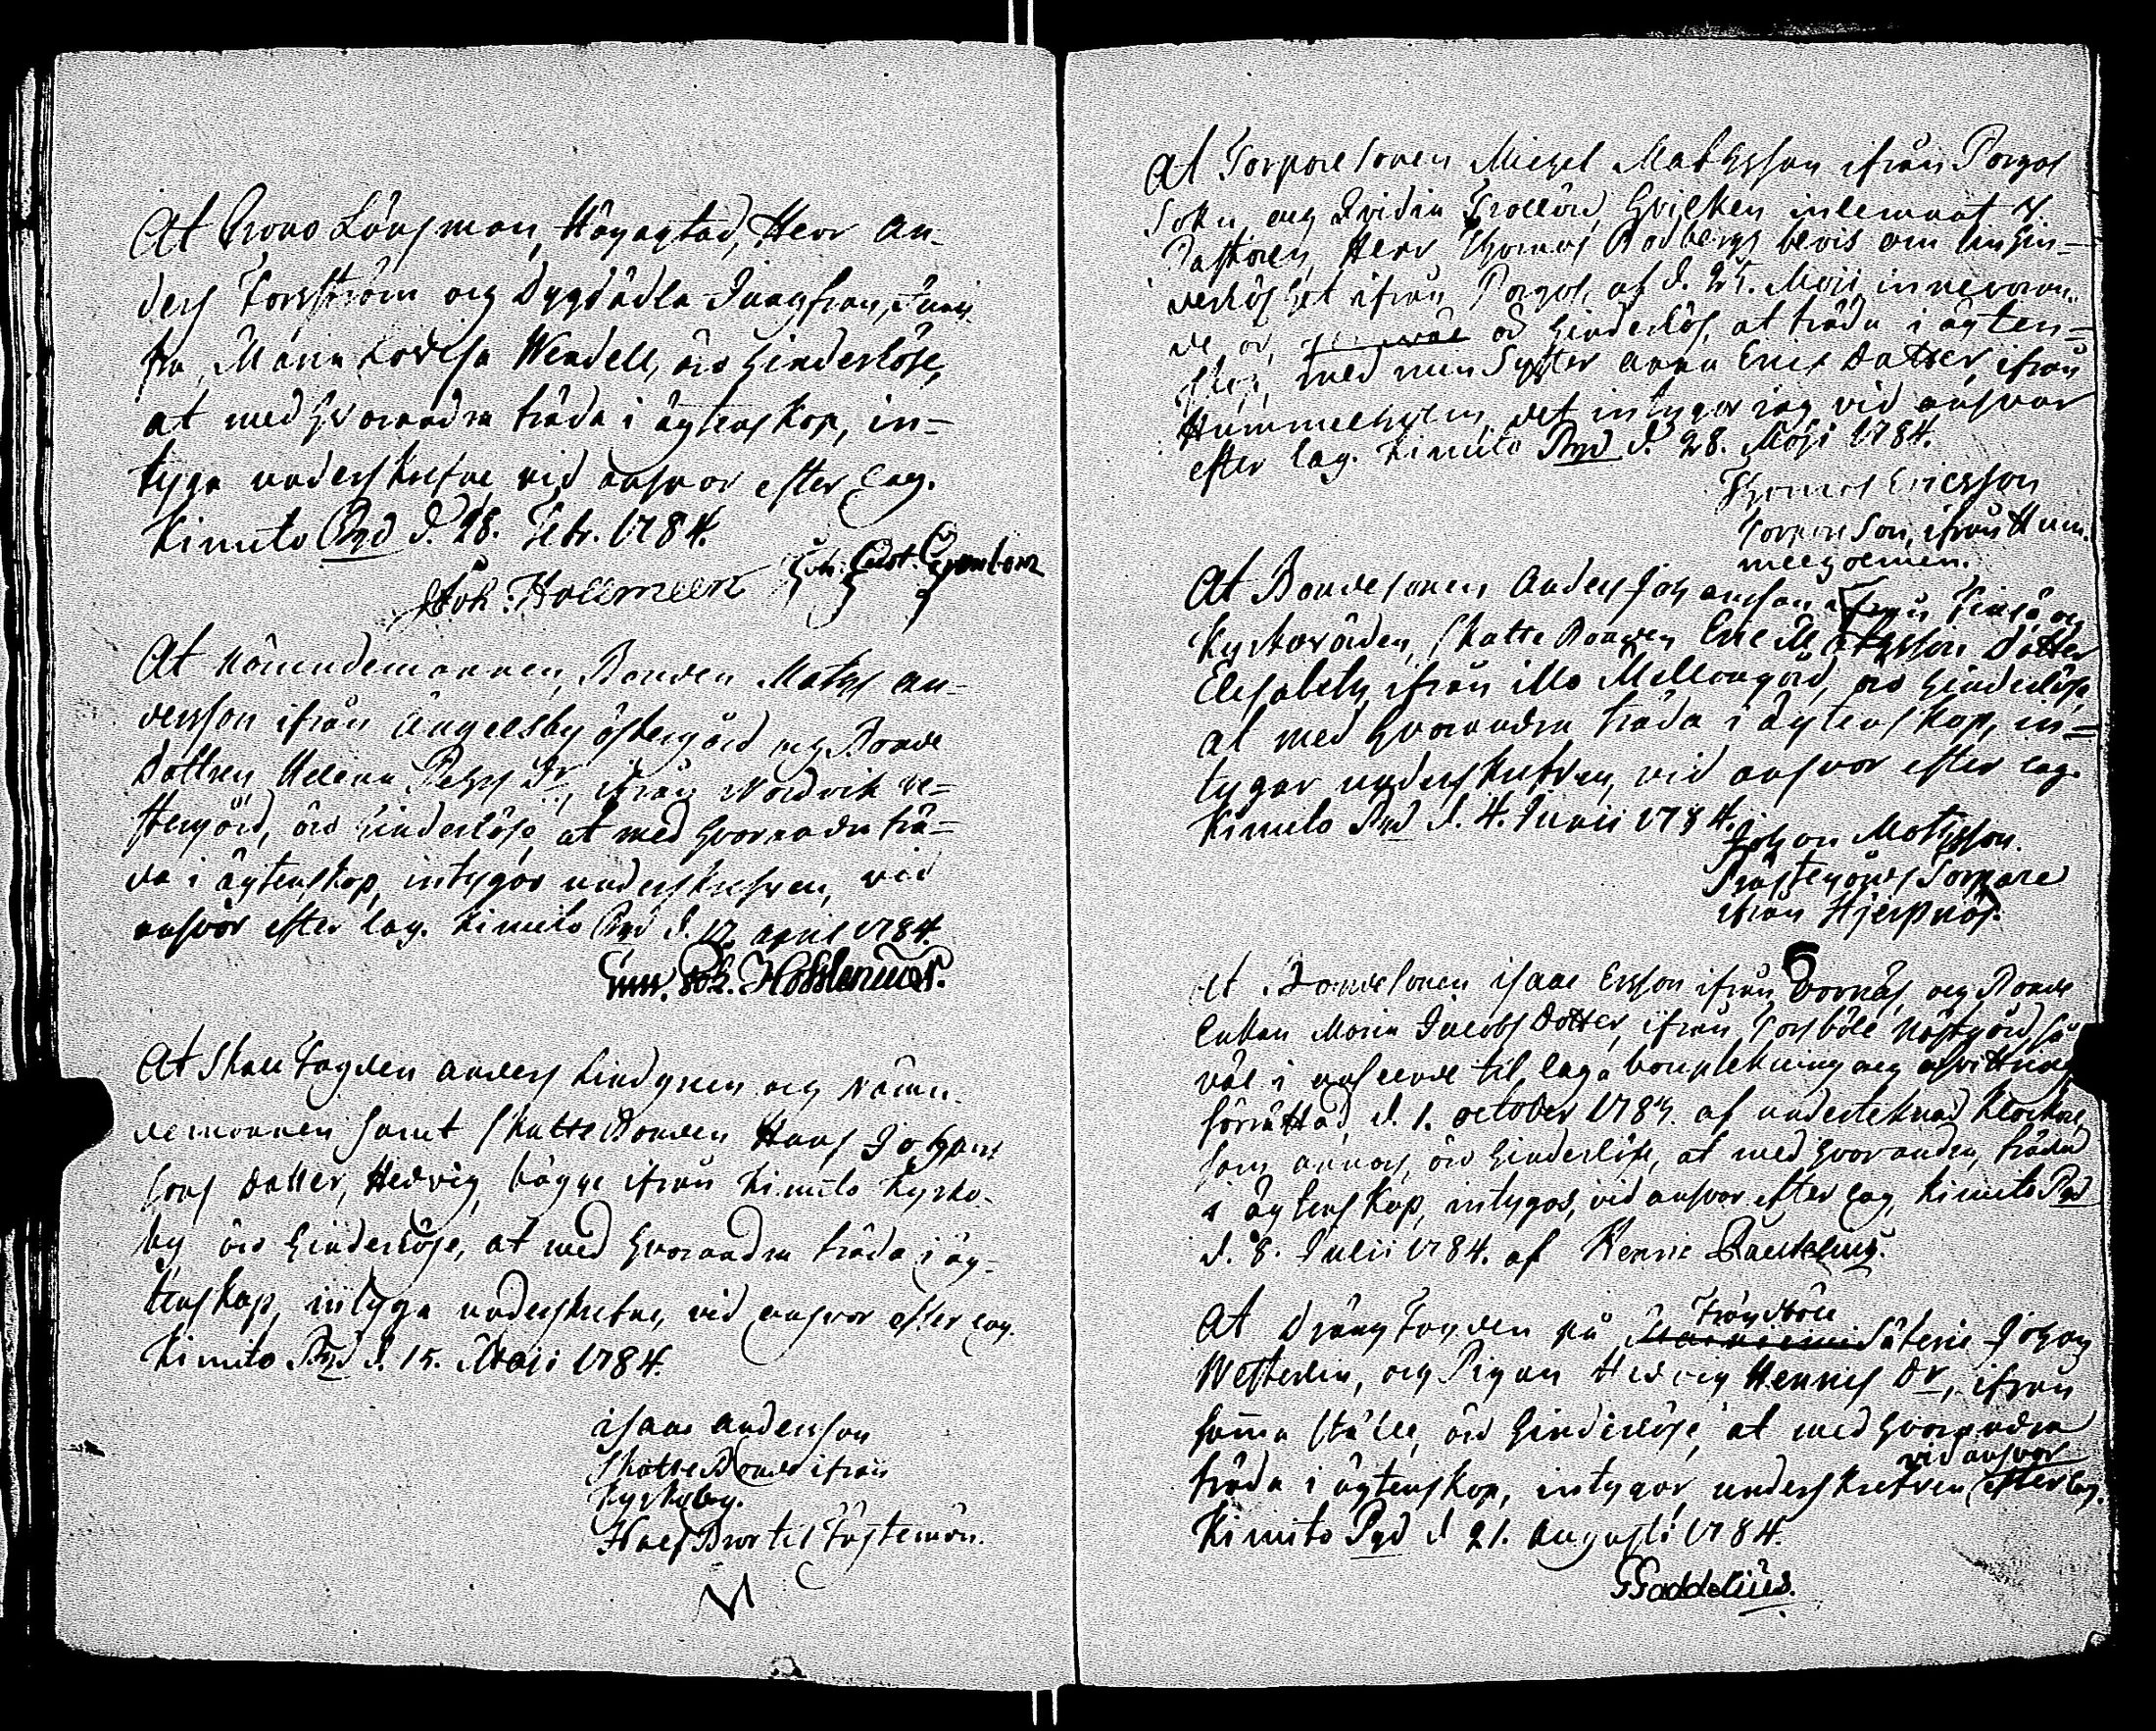 At Crono Länsman, Högagtad, Herr An-
ders Forsström och Dygdädla Jungfrun, Jung-
fru, Maria Lovisa Wendell, äro hinderlöse,
at med hvarandra träda i ägtenskap, in-
tyga underskrefne vid answar efter Lag.
Kimito Pgd d. 28. Febr. 1784.
Joh: Hollmeen Joh: Gust.
At Nämndemannen, Bonden Mats An-
dersson ifrån Ängelsby östergård och Bonde
Dottren Helena Petsf Dr, ifrån Nordvik ve-
stergård, äro hinderlöse, at med hvarandra trä-
da i ägtenskap, intygar underskrefven, vid
answar efter lag. Kimito Pgd d. 17. april 1784.
At Skall Fogden Anders Lindgren och Nämn-
demannen samt Skatte Bonden Hans Johans
sons Dotter, Hedvig, bägge ifrån Kimito Kyrko-
by äro hinderlöse, at med hvarandra träda i äg-
tenskap, intyga underskrefne, vid answar efter lag.
Kimito Pgd d. 15. Maji 1784.
isaac andersson
Skatte Bonde ifrån
Kyrkoby.
Half Bror til Fästemön.
At Torpare sonen Michel Mathsson ifrån Pargas
Sokn och Qvidia Trollön, hvilken inlemnat V.
Pastoren, Herr Thomas Rodbergs bevis om hin-
derlöshet ifrån Pargas, af d. 25. Maji innevaran-
de, är, hinderlös, at träda i ägten-
skap, med min Syster Anna Erics Dotter, ifrån
Hummelholm, det intygar jag vid answar
efter lag. Kimito Pgd d. 28. Maji 1784.
Thomas Ericsson
Torpare Son, ifrån Hum-
melholmen.
At Bonde sonen Anders Johansson ifrån och
Kyrkovärden, Skatte Bonden Eric Mathsson Dotter
Elisabeth, ifrån illo Mellangård, äro hinderlöse,
at med hvarandra träda i ägtenskap, in-
tygar underskrefven, vid answar efter lag.
Kimito Pgd d. 4. Junii 1784.
Johan Mathsson.
Prästegårds Torpare
ifrån Hjerpnäs.
At Bonde sonen isaac Ersson ifrån och Bonde
Enkan Maria Jacobs Dotter, ifrån Torsböle Nästgård, så
väl i anseende til laga bouptekning och afvittring
förrättad, d. 1. october 1783. af undertecknad Klockare,
som annars, äro hinderlöse, at med hvarandra, träda
i ägtenskap, intygas, vid answar efter lag, Kimito Pgd
d. 8. Julii 1784. af Henric
Trändböle
At Dräng Fogden på Säterie Johan
Westerlin, och Pigan Hedvig Henrics Dr, ifrån
samma ställe, äro hinderlöse, at med hvarandra
vid answar
träda i ägtenskap, intygar underskrefven efter lag.
Kimito Pgd d 21. Augusti 1784.